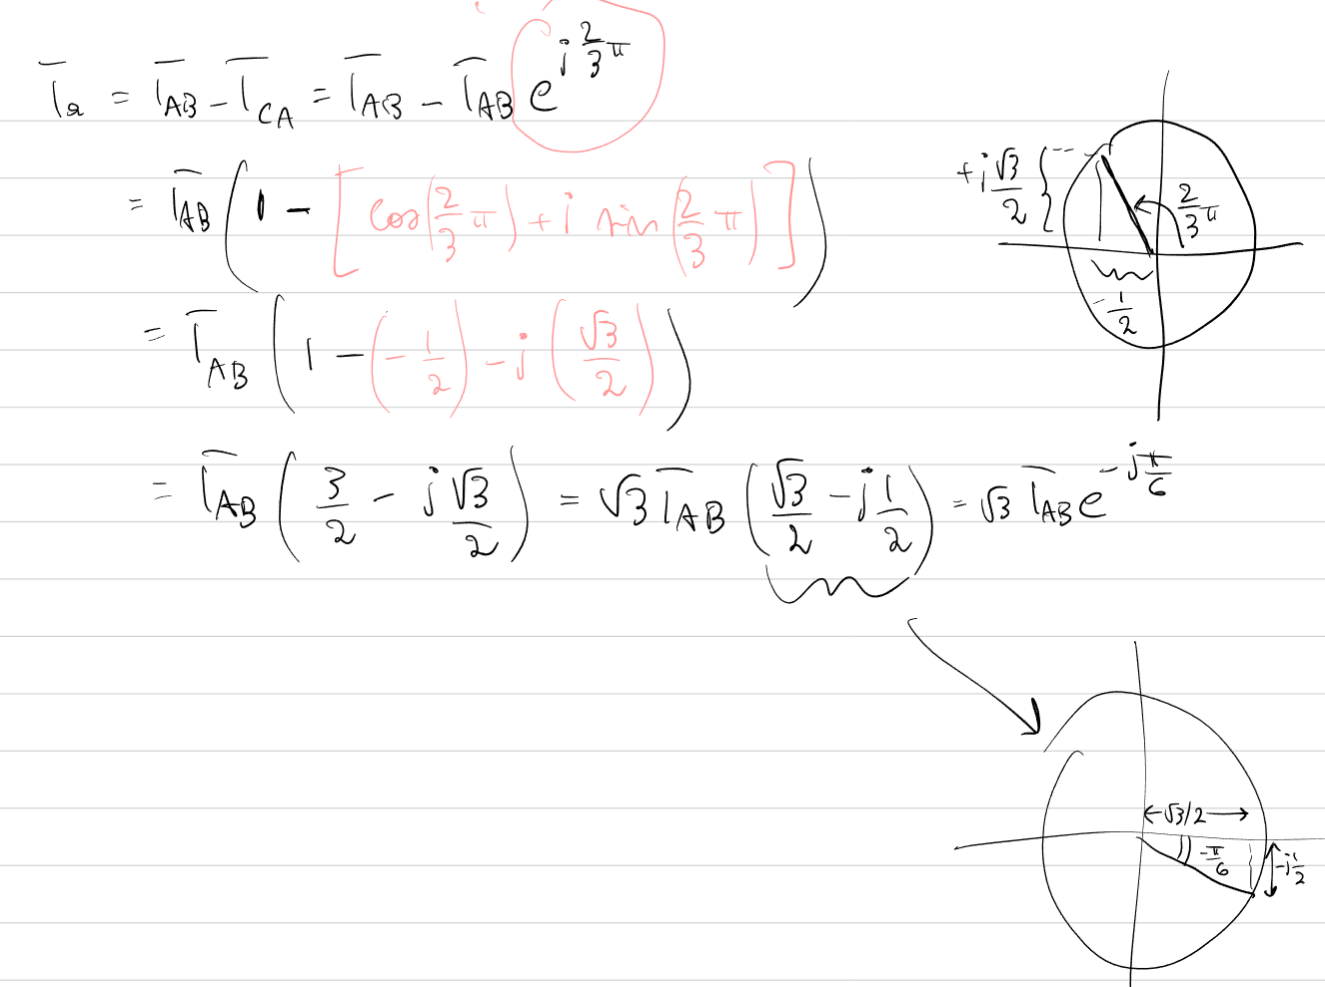 I̅a = I̅AB - I̅CA = I̅AB - I̅AB e^(j 2/3 π)
= I̅AB (1 - [cos(2/3 π) + j sin(2/3 π)])
= I̅AB (1 - (-1/2) - j (√3/2))
= I̅AB (3/2 - j √3/2) = √3 I̅AB (√3/2 - j 1/2) = √3 I̅AB e^(-j π/6)
+j √3/2
2/3 π
-1/2
√3/2
-π/6
-j 1/2